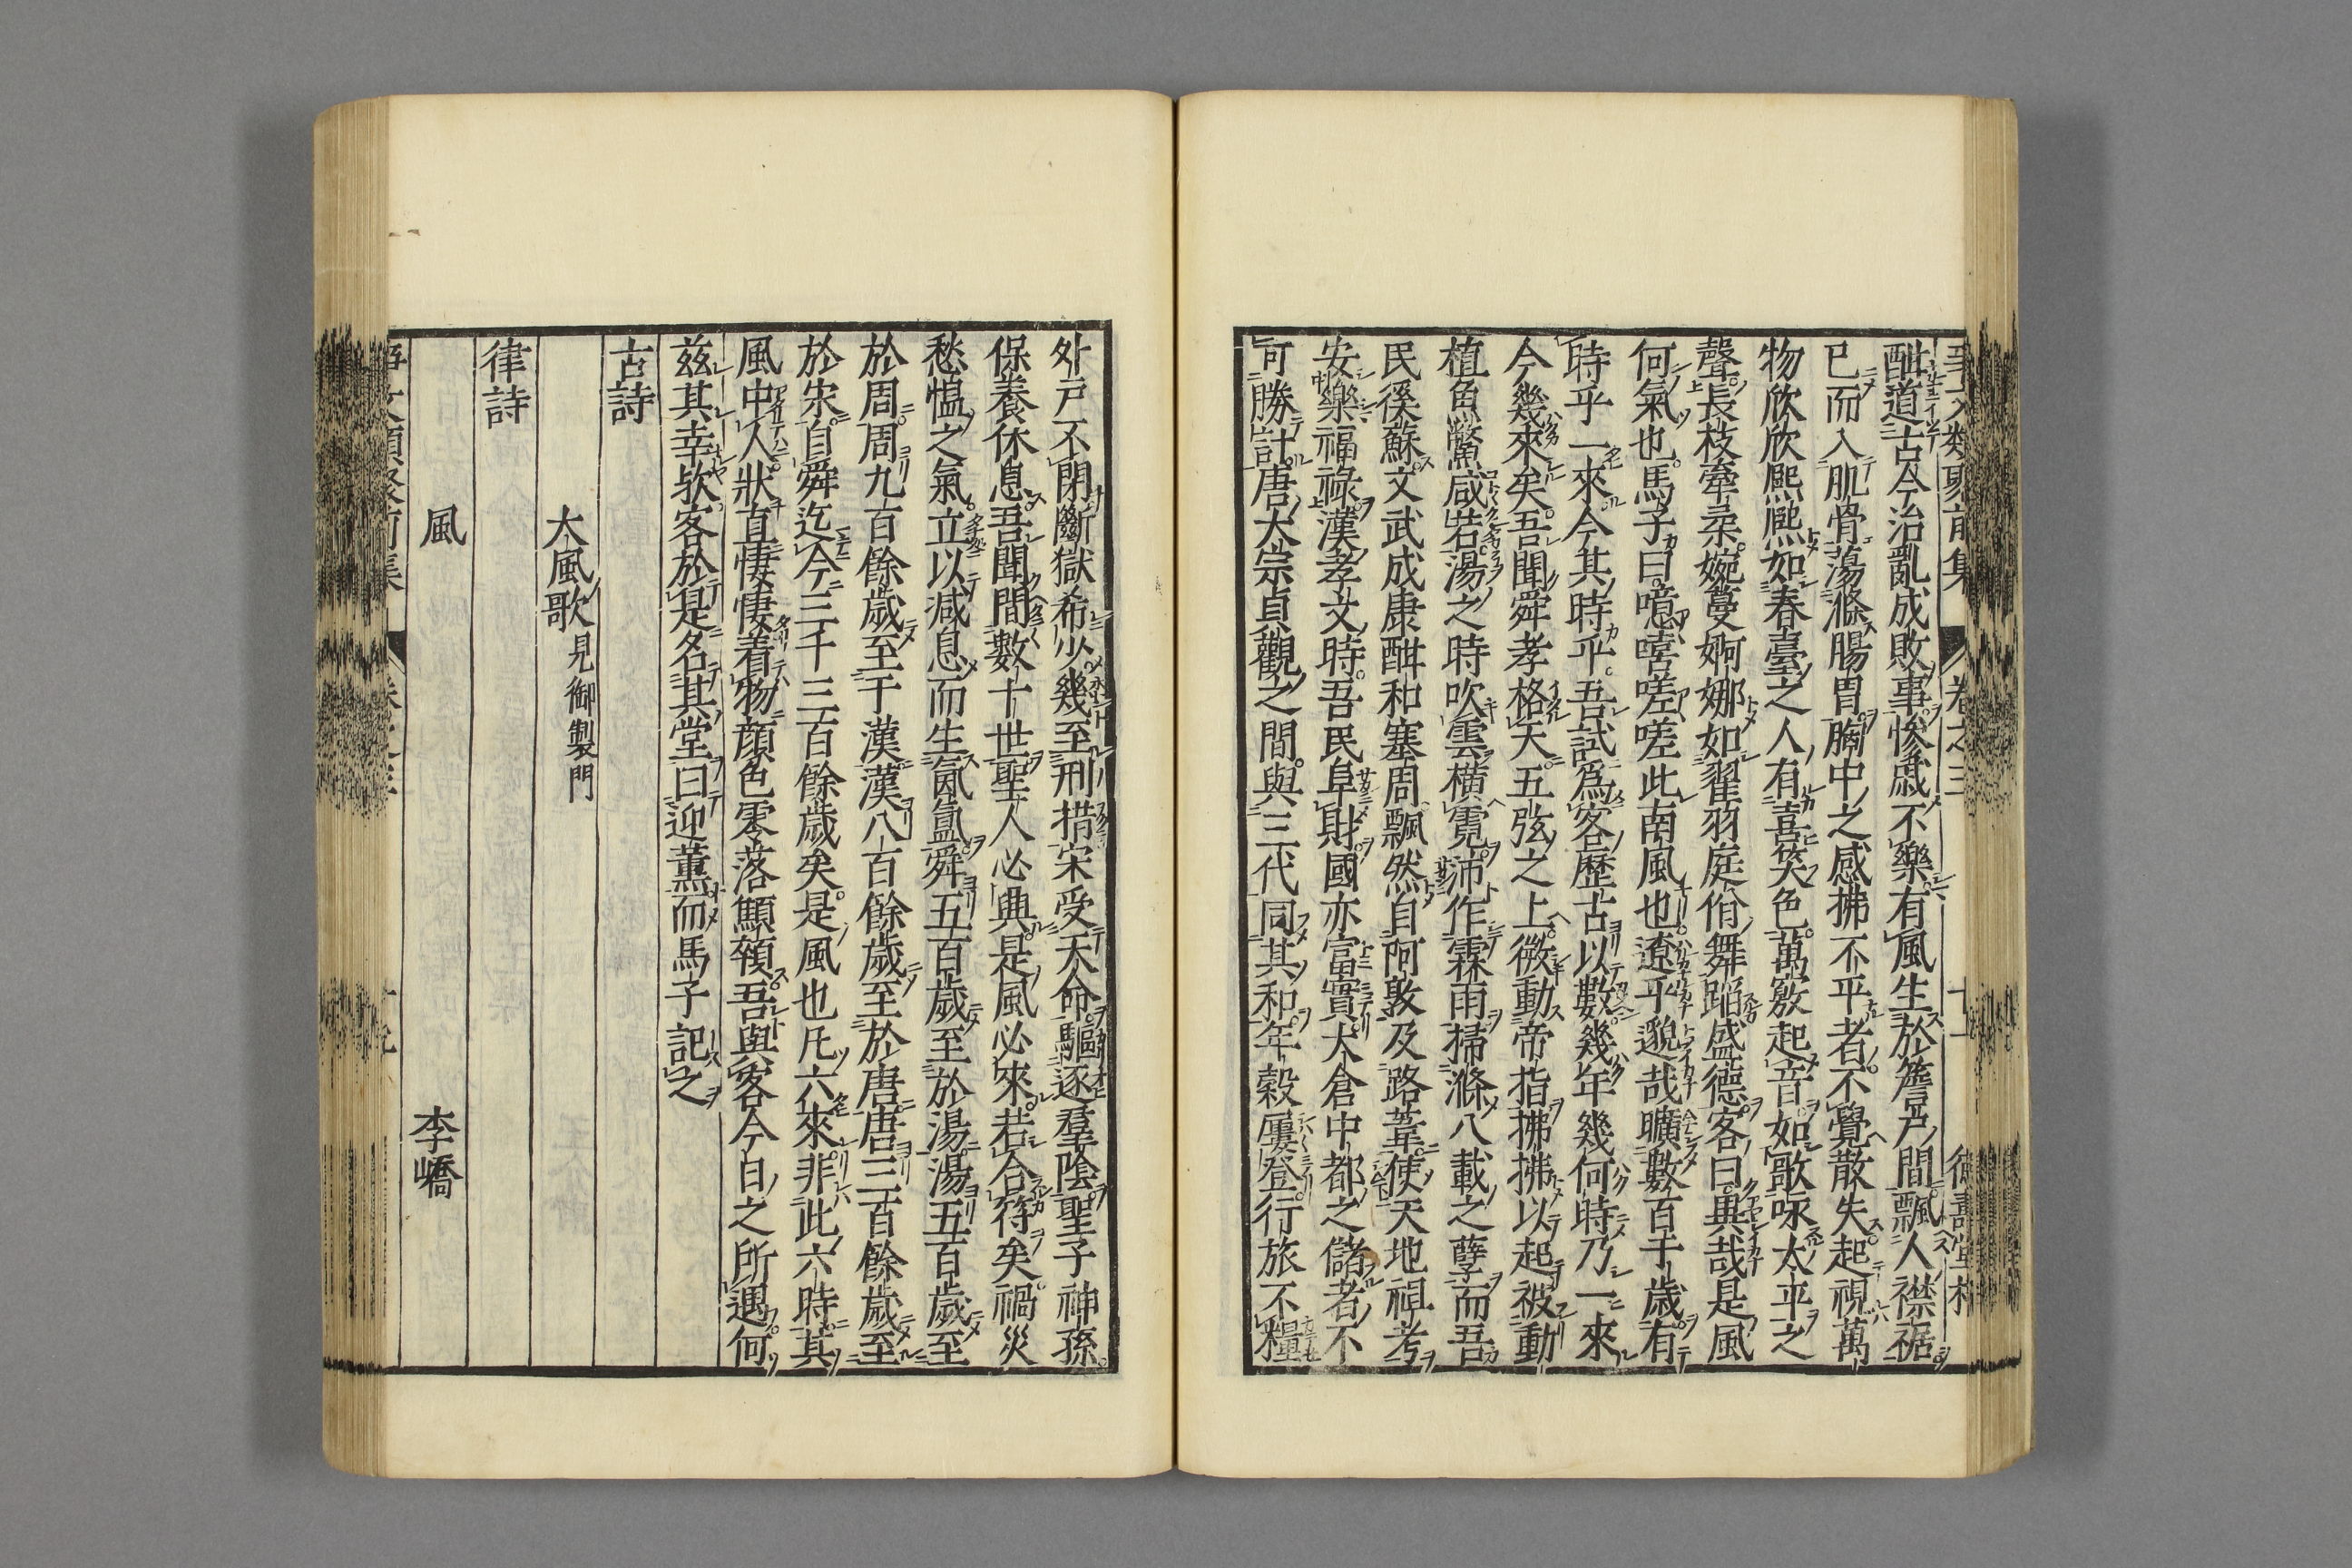 事文類聚前集 卷之三 十一 德壽堂梓
酣道古今治亂成敗事慘戚不樂有風生於簷戶間飄人襟裾
已而入肌骨蕩滌腸胃胸中之感拂不平者不覺散失起視萬
物欣欣熙熙如春臺之人有喜笑色萬竅起音如歌咏太平之
聲長枝牽柔婉蔓婀娜如翟羽庭佾舞蹈盛德客曰異哉是風
何氣也馬子曰噫嘻嗟嗟此南風也遼乎邈哉曠數百千歲有
時乎一來今其時乎吾試爲客歷古以數幾年幾何時乃一來
今幾來矣吾聞舜孝格天五弦之上微動帝指拂拂以起被動
植魚鱉咸若湯之時吹雲橫霓沛作霖雨掃滌八載之孽而吾
民徯蘇文武成康酣和塞周飄然自阿敦及路葦使天地祖考
安樂福祿漢孝文時吾民阜財國亦富實大倉中都之儲者不
可勝計唐太宗貞觀之間與三代同其和年穀屢登行旅不糧
外戸不閉斷獄希少幾至刑措宋受天命驅逐羣陰聖子神孫
保養休息吾聞間數十世聖人必典是風必來若合符矣禍災
愁慍之氣立以减息而生氤氳舜五百歲至於湯湯五百歲至
於周周九百餘歲至于漢漢八百餘歲至於唐唐三百餘歲至
於宋自舜迄今三千三百餘歲矣是風也凡六來非此六時其
風中人狀直悽悽着物顏色零落顦顇吾與客今日之所遇何
兹其幸欤客於是名其堂曰迎薰而馬子記之
古詩
大風歌 見御製門
律詩
風 李嶠